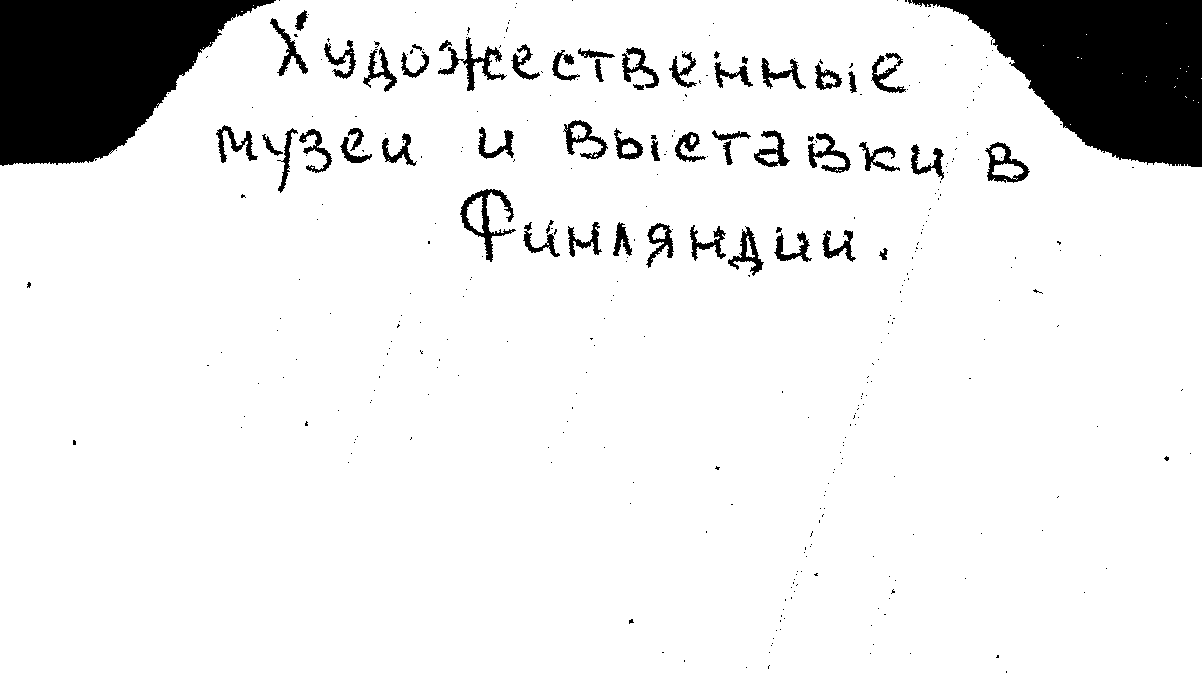 Художественные
музеи и выставки в
Финляндии.